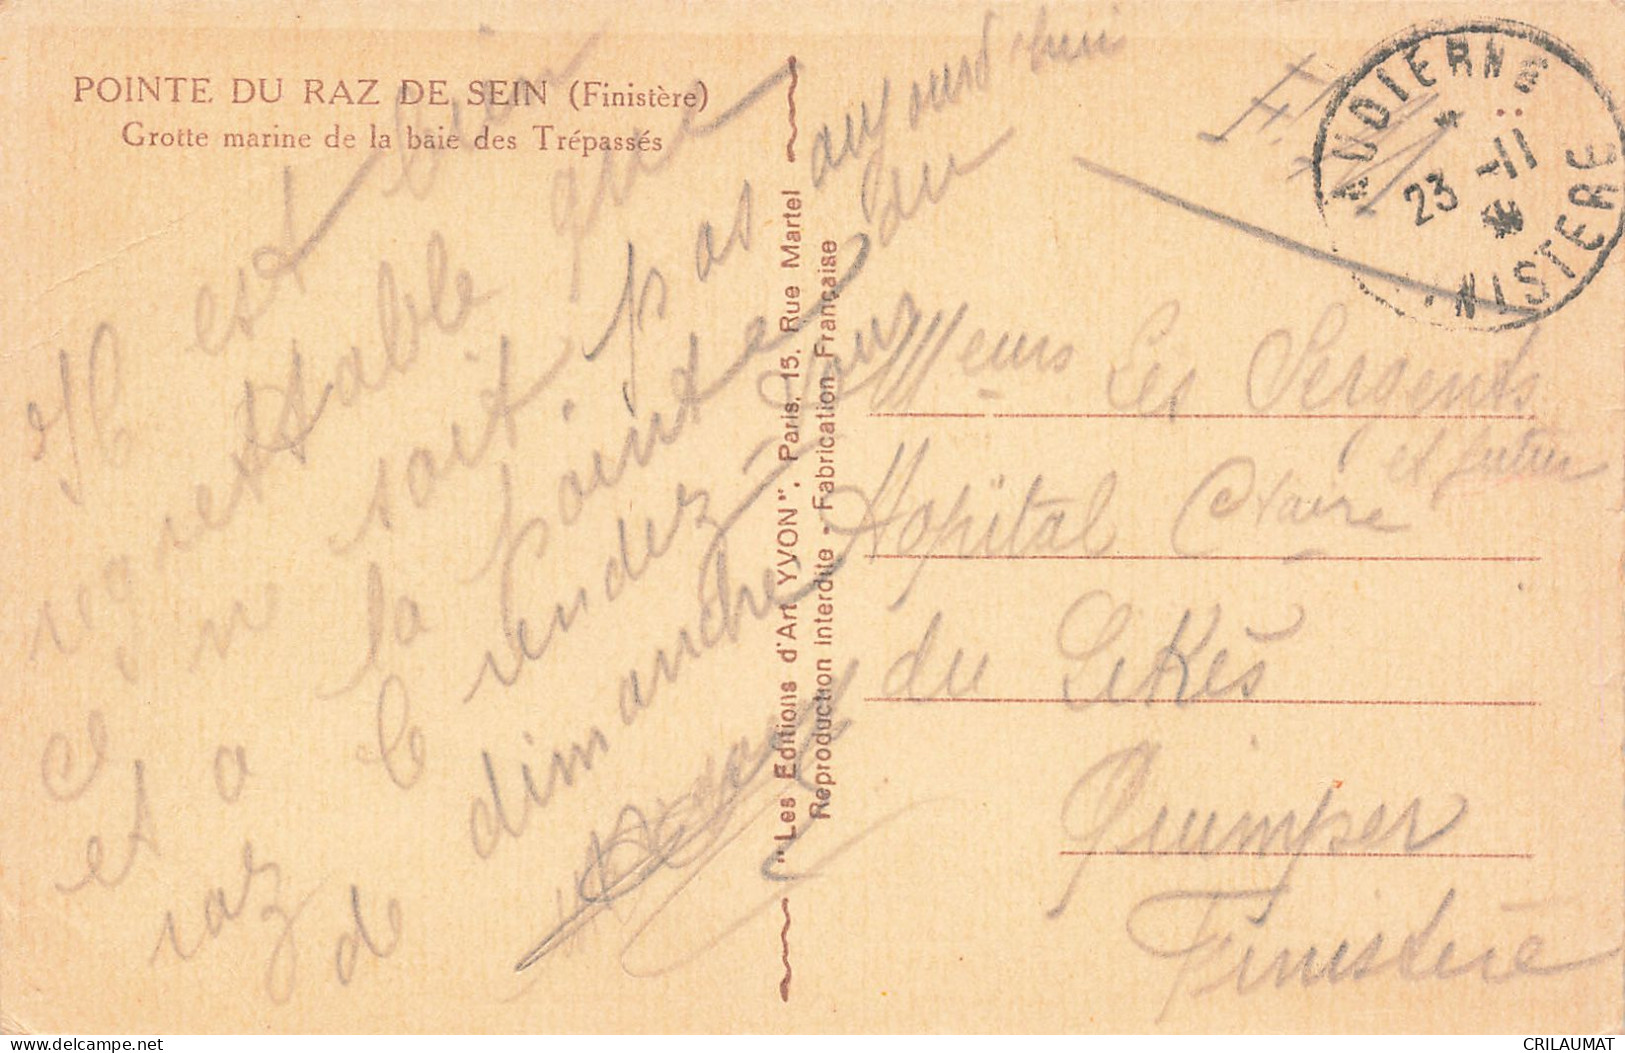 POINTE DU RAZ DE SEIN (Finistère)
Grotte marine de la baie des Trépassés
Il est bien
regrettable que
ce ne soit pas aujourd'hui
et à la pointe du
raz le rendez-vous
de dimanche
"Les Editions d'Art YVON", Paris, 15, Rue Martel
Reproduction interdite - Fabrication Française
F.M.
AUDIERNE
23 -11
FINISTERE
Meurs Les Sergents
et autres
Hopital Claire
du Likès
Quimper
Finistère
delcampe.net
CRILAUMAT